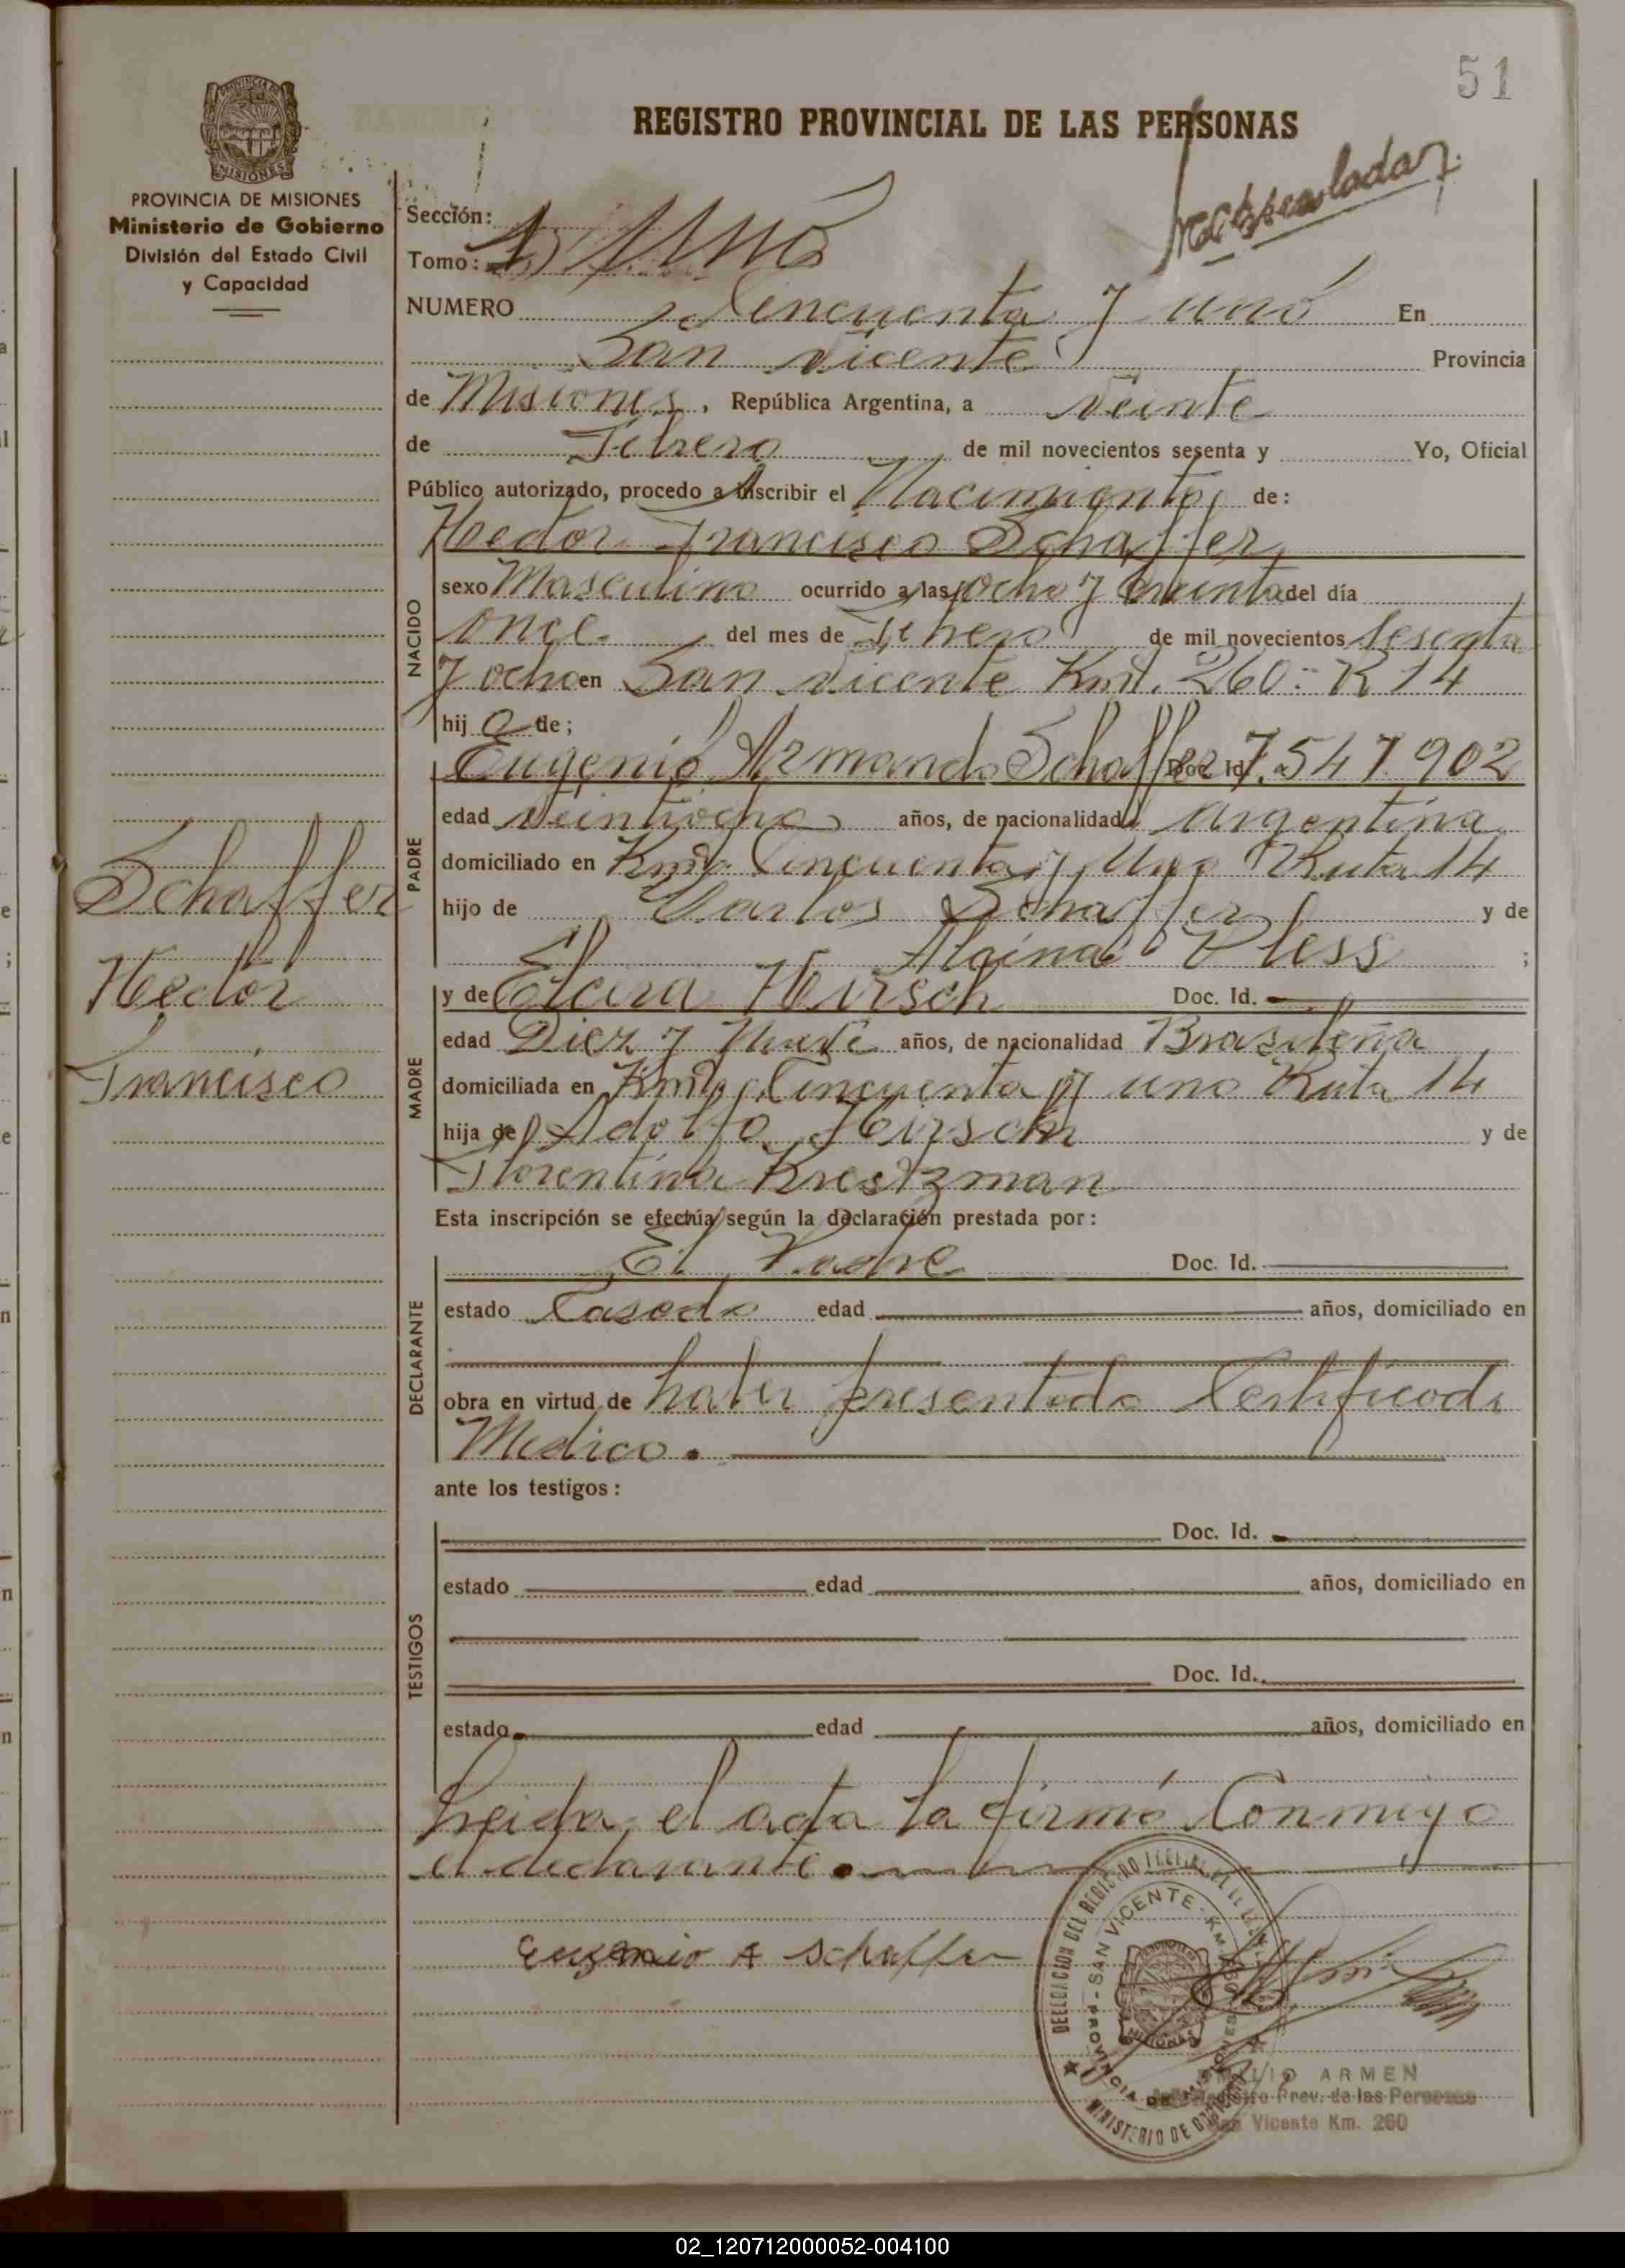 51
REGISTRO PROVINCIAL DE LAS PERSONAS
PROVINCIA DE
MISIONES
PROVINCIA DE MISIONES
Ministerio de Gobierno
División del Estado Civil
y Capacidad
Sección:
Tomo: 1) Uno
NUMERO Cincuenta y uno En
San Vicente Provincia
de Misiones, República Argentina, a Veinte
de Febrero de mil novecientos sesenta y Yo, Oficial
Público autorizado, procedo a inscribir el Nacimiento de:
Hector Francisco Schaffer
NACIDO
sexo Masculino ocurrido a las ocho y treinta del día
once del mes de Febrero de mil novecientos sesenta
y ocho en San Vicente Kmt. 260 - R 14
hij o de;
PADRE
Eugenio Armando Schaffer Doc Id 7.547.902
edad veintiocho años, de nacionalidad Argentina
domiciliado en Kmto Cincuenta y Uno Ruta 14
hijo de Carlos Schaffer y de
Alaina Pless ;
MADRE
y de Elcira Heirsch Doc. Id.
edad Diez y Nueve años, de nacionalidad Brasileña
domiciliada en Kmto Cincuenta y uno Ruta 14
hija de Adolfo Heirsch y de
Florentina Krestzman
Esta inscripción se efectúa según la declaración prestada por:
DECLARANTE
El Padre Doc. Id.
estado Casado edad años, domiciliado en
obra en virtud de haber presentado Certificado
Medico.
ante los testigos:
TESTIGOS
Doc. Id.
estado edad años, domiciliado en
Doc. Id.
estado edad años, domiciliado en
Leida el acta la firmó Conmigo
el declarante.
Eugenio A Schaffer
Schaffer
Hector
Francisco
DELEGACION DEL REGISTRO
SAN VICENTE - KM. 260
PROVINCIA DE MISIONES
MINISTERIO DE GOBIERNO
EMILIO ARMEN
Registro Prov. de las Personas
San Vicente Km. 260
02_120712000052-004100